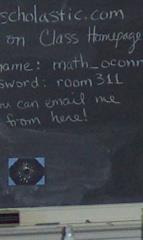 scholastic.com
on Class Homepage
name: math_oconn
sword: room311
ou can email me
from here!